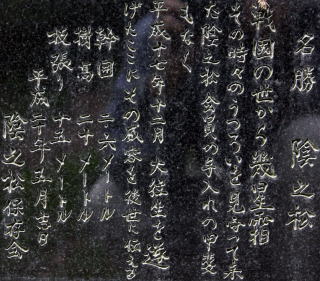 名勝 陰之松
戦国の世から幾星霜
その時々のうつろいを見守って来
た陰之松 会員の手入れの甲斐
もなく
平成十七年十二月 大往生を遂
げたここにその風容を後世に伝える
幹囲 二・六メートル
樹高 二十メートル
枝張り 十五メートル
平成二十年五月吉日
陰之松保存会